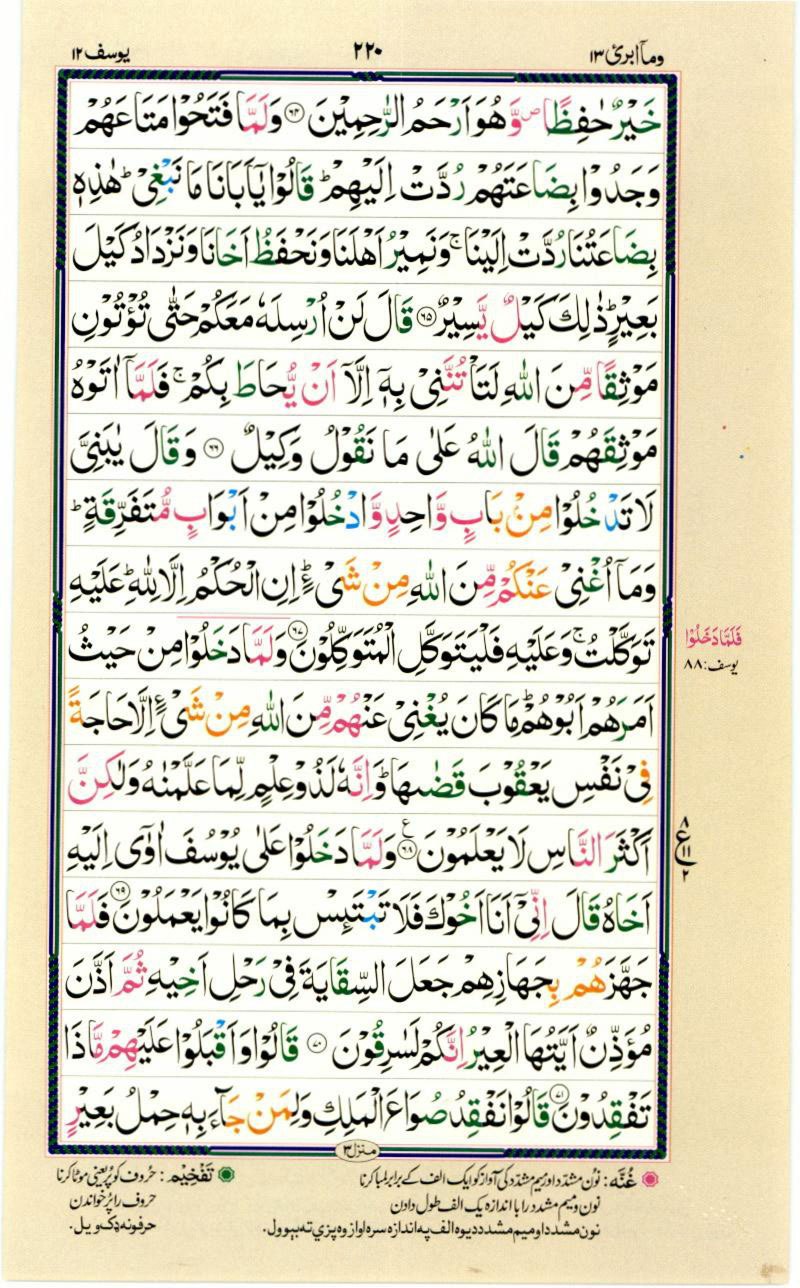 وماۤ ابریٔ ۱۳
۲۲۰
یوسف ۱۲
خَيْرٌ حٰفِظًا ۖ وَّهُوَ اَرْحَمُ الرّٰحِمِيْنَ ﴿۶۴﴾ وَلَمَّا فَتَحُوْا مَتَاعَهُمْ
وَجَدُوْا بِضَاعَتَهُمْ رُدَّتْ اِلَيْهِمْ ؕ قَالُوْا يٰۤاَبَانَا مَا نَبْغِىْ ؕ هٰذِهٖ
بِضَاعَتُنَا رُدَّتْ اِلَيْنَا ۚ وَنَمِيْرُ اَهْلَنَا وَنَحْفَظُ اَخَانَا وَنَزْدَادُ كَيْلَ
بَعِيْرٍ ؕ ذٰلِكَ كَيْلٌ يَّسِيْرٌ ﴿۶۵﴾ قَالَ لَنْ اُرْسِلَهٗ مَعَكُمْ حَتّٰى تُؤْتُوْنِ
مَوْثِقًا مِّنَ اللّٰهِ لَتَاْتُنَّنِىْ بِهٖۤ اِلَّاۤ اَنْ يُّحَاطَ بِكُمْ ۚ فَلَمَّاۤ اٰتَوْهُ
مَوْثِقَهُمْ قَالَ اللّٰهُ عَلٰى مَا نَقُوْلُ وَكِيْلٌ ﴿۶۶﴾ وَقَالَ يٰبَنِىَّ
لَا تَدْخُلُوْا مِنْۢ بَابٍ وَّاحِدٍ وَّادْخُلُوْا مِنْ اَبْوَابٍ مُّتَفَرِّقَةٍ ؕ
وَمَاۤ اُغْنِىْ عَنْكُمْ مِّنَ اللّٰهِ مِنْ شَىْءٍ ؕ اِنِ الْحُكْمُ اِلَّا لِلّٰهِ ؕ عَلَيْهِ
تَوَكَّلْتُ ۚ وَعَلَيْهِ فَلْيَتَوَكَّلِ الْمُتَوَكِّلُوْنَ ﴿۶۷﴾ وَلَمَّا دَخَلُوْا مِنْ حَيْثُ
فَلَمَّا دَخَلُوْا
یوسف: ۸۸
اَمَرَهُمْ اَبُوْهُمْ ؕ مَا كَانَ يُغْنِىْ عَنْهُمْ مِّنَ اللّٰهِ مِنْ شَىْءٍ اِلَّا حَاجَةً
فِىْ نَفْسِ يَعْقُوْبَ قَضٰىهَا ؕ وَاِنَّهٗ لَذُوْ عِلْمٍ لِّمَا عَلَّمْنٰهُ وَلٰكِنَّ
اَكْثَرَ النَّاسِ لَا يَعْلَمُوْنَ ﴿۶۸﴾ ع وَلَمَّا دَخَلُوْا عَلٰى يُوْسُفَ اٰوٰۤى اِلَيْهِ
۸
ع ۱۱
۲
اَخَاهُ قَالَ اِنِّىْۤ اَنَا اَخُوْكَ فَلَا تَبْتَئِسْ بِمَا كَانُوْا يَعْمَلُوْنَ ﴿۶۹﴾ فَلَمَّا
جَهَّزَهُمْ بِجَهَازِهِمْ جَعَلَ السِّقَايَةَ فِىْ رَحْلِ اَخِيْهِ ثُمَّ اَذَّنَ
مُؤَذِّنٌ اَيَّتُهَا الْعِيْرُ اِنَّكُمْ لَسٰرِقُوْنَ ﴿۷۰﴾ قَالُوْا وَاَقْبَلُوْا عَلَيْهِمْ مَّاذَا
تَفْقِدُوْنَ ﴿۷۱﴾ قَالُوْا نَفْقِدُ صُوَاعَ الْمَلِكِ وَلِمَنْ جَآءَ بِهٖ حِمْلُ بَعِيْرٍ
منزل ۳
غُنَّه: نون مشدد اور میم مشدد کی آواز کو ایک الف کے برابر لمبا کرنا
نون و میم مشدد را با اندازه یک الف طول دادن
نون مشدد او میم مشدد دیوه الف په اندازه سره اواز وه پزې ته بېوول.
تَفْخِيْم: حروف کو پُر یعنی موٹا کرنا
حروف را پُر خواندن
حرفونه ډک ویل.